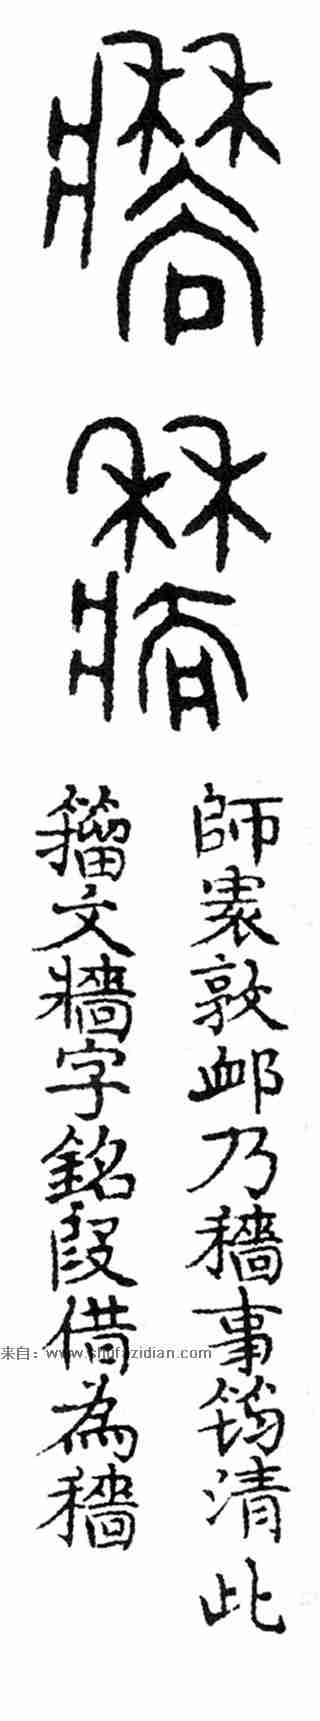 師寰敦卹乃穡事筠清此
籀文牆字銘叚借為穡
来自：www.shufazidian.com